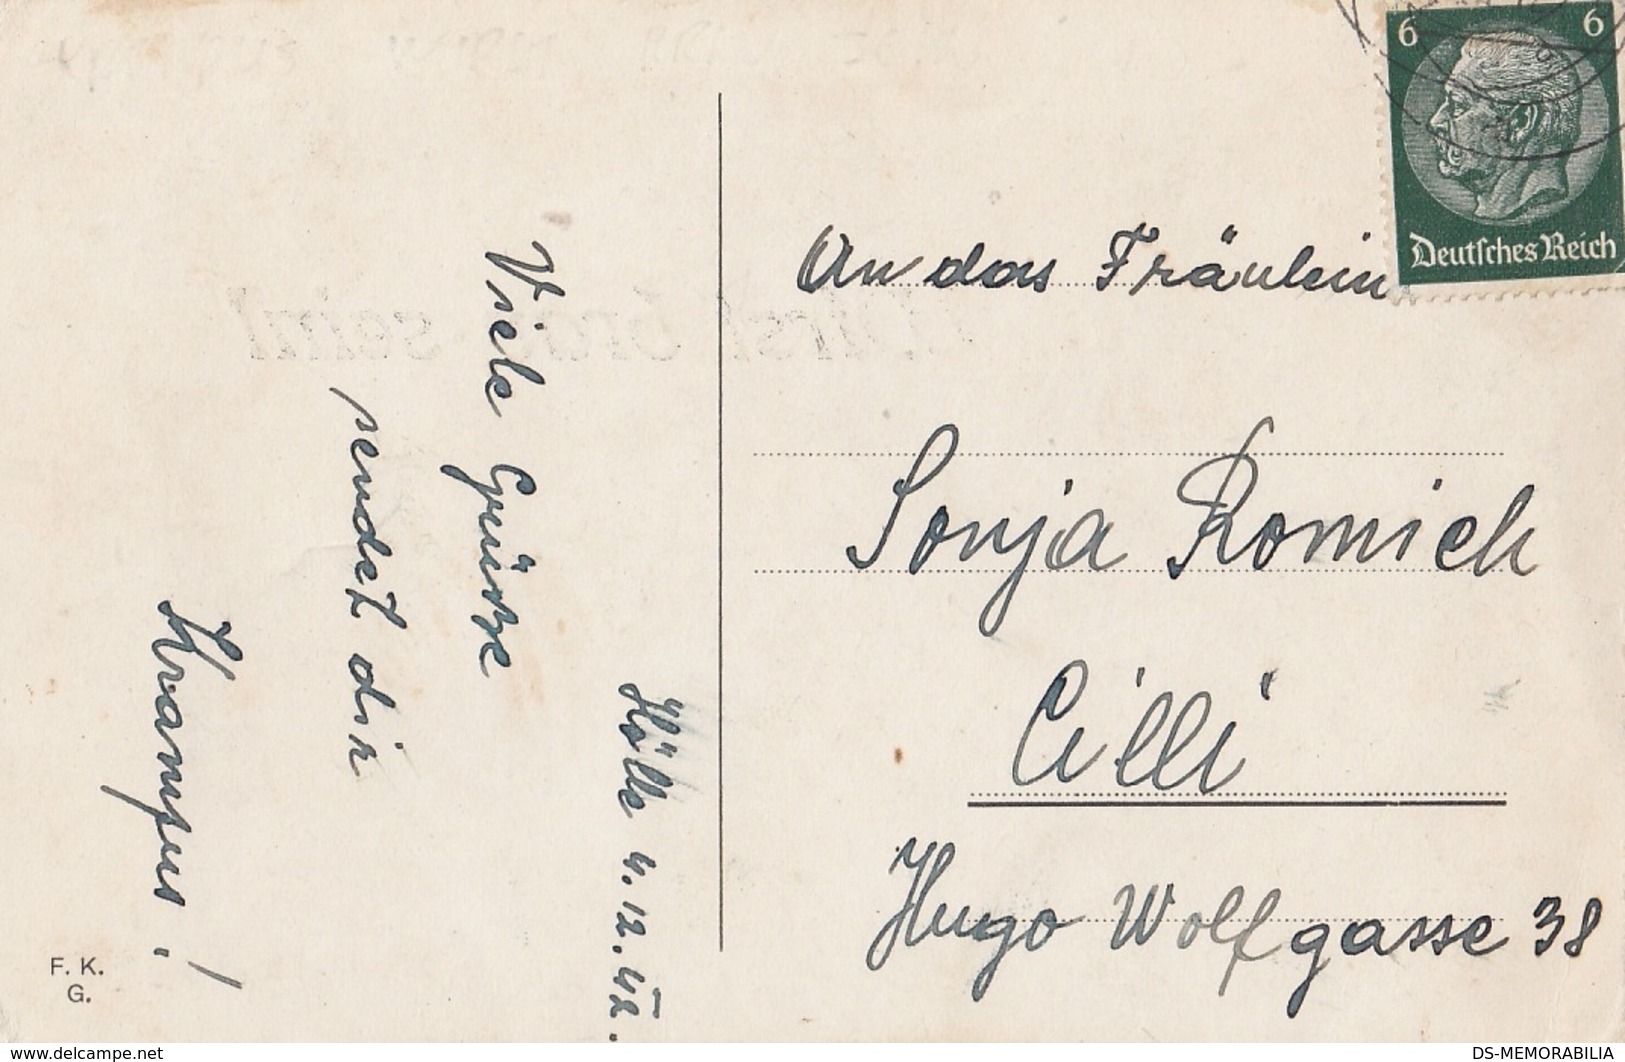 Hölle 4.12.42.
Viele Grüsse
sendet dir
Krampus!
F. K.
G.
6 6
Deutsches Reich
An das Fräulein
Sonja Romich
Cilli
Hugo Wolfgasse 38
www.delcampe.net
DS-MEMORABILIA